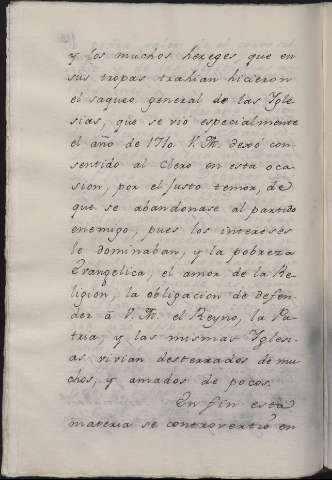 y los muchos hereges que en
sus tropas trahian hicieron
el saqueo general de las Ygle
sias, que se vio especialmente
el año de 1710. V. M. dexó con
sentido al Clero en esta oca
sion, por el justo temor, de
que se abandonase al partido
enemigo, pues los intereses
le dominaban, y la pobreza
Evangelica, el amor de la Re
ligion, la obligacion de defen
der à V. M. el Reyno, la Pa
tria, y las mismas Ygles
as vivian desterrados de mu
chos, y amados de pocos.
En fin esta
materia se controvertiò en